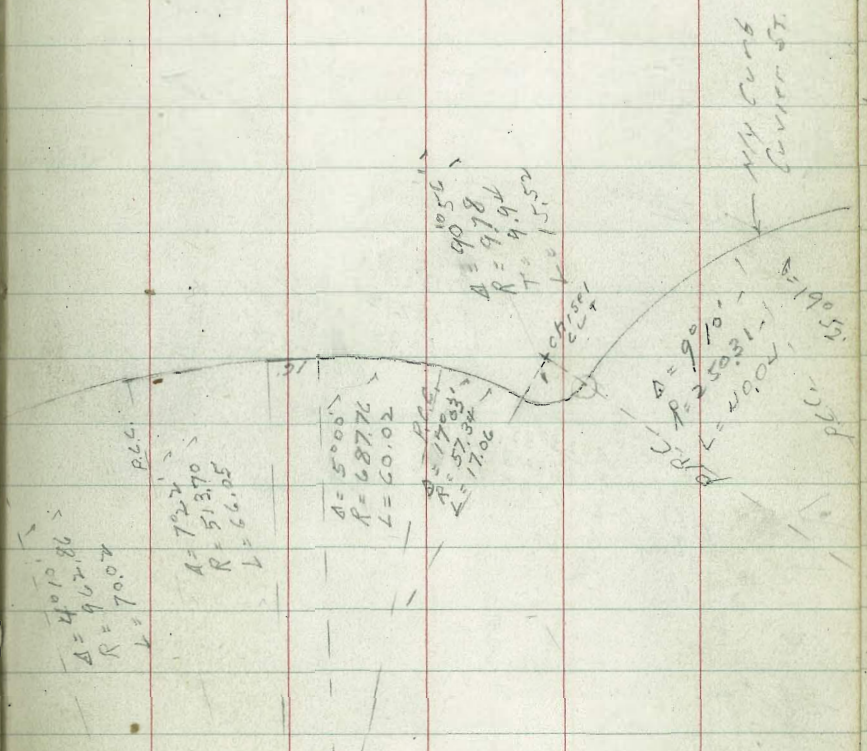 Δ = 4°10'
R = 962.86
L = 70.02
P.C.C.
Δ = 7°22'
R = 513.70
L = 66.05
Δ = 5°00'
R = 687.76
L = 60.02
P.C.C.
Δ = 17°03'
R = 57.34
L = 17.06
Δ = 90°56'
R = 9.78
T = 9.94
L = 15.52
Chisel
Cut
P.R.C.
Δ = 9°10'
R = 250.31
L = 40.02
P.C.C.
Δ = 19°52'
Curb
Currier St.